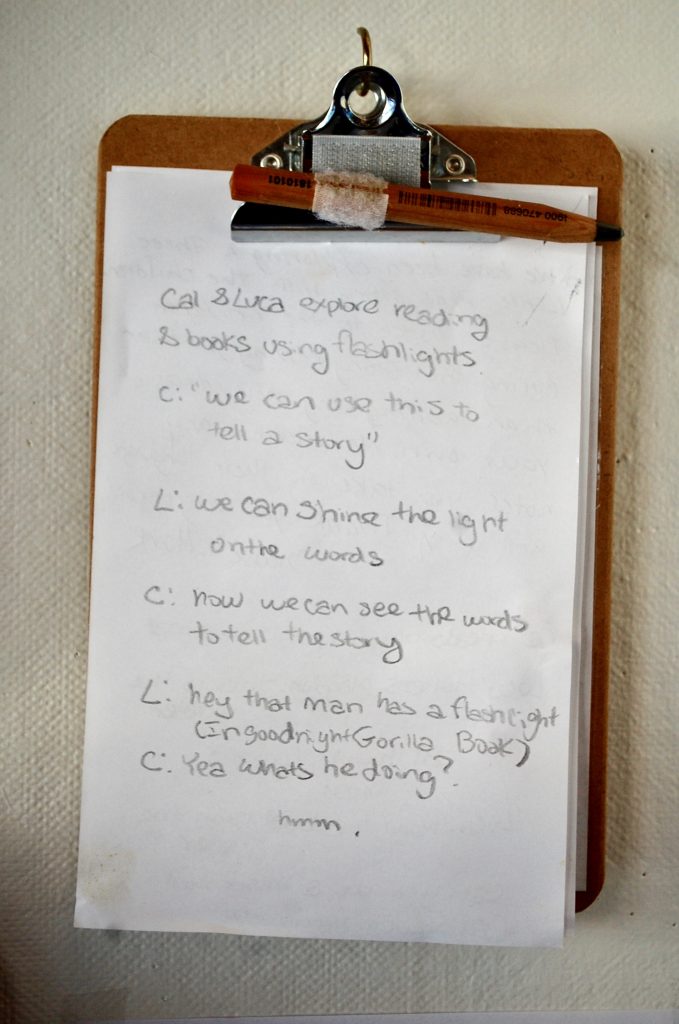 1810101
1000 470688
Cal & Luca explore reading
& books using flashlights.
C: "we can use this to
tell a story"
L: we can shine the light
on the words
C: now we can see the words
to tell the story
L: hey that man has a flashlight
(In goodnight Gorilla Book)
C: Yea whats he doing?
hmm.